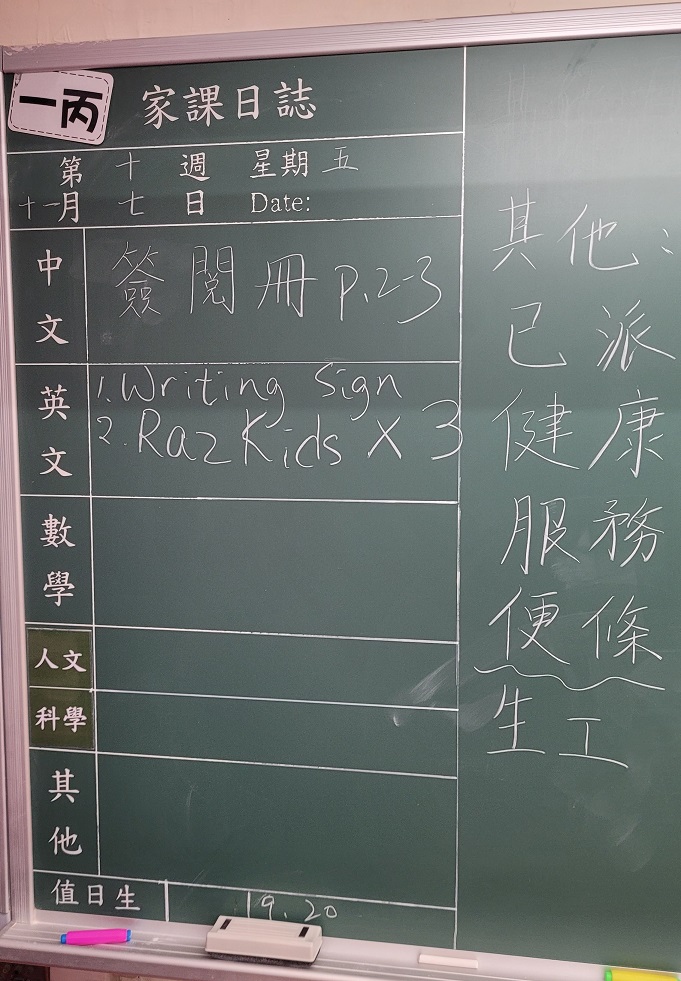 一丙
家課日誌
第十週 星期五
十一月七日 Date:
中文 簽閱冊 P.2-3
英文 1.Writing Sign
2.RazKids X 3
數學
人文
科學
其他
值日生 19.20
其他:
已派
健康
服務
便條
生工